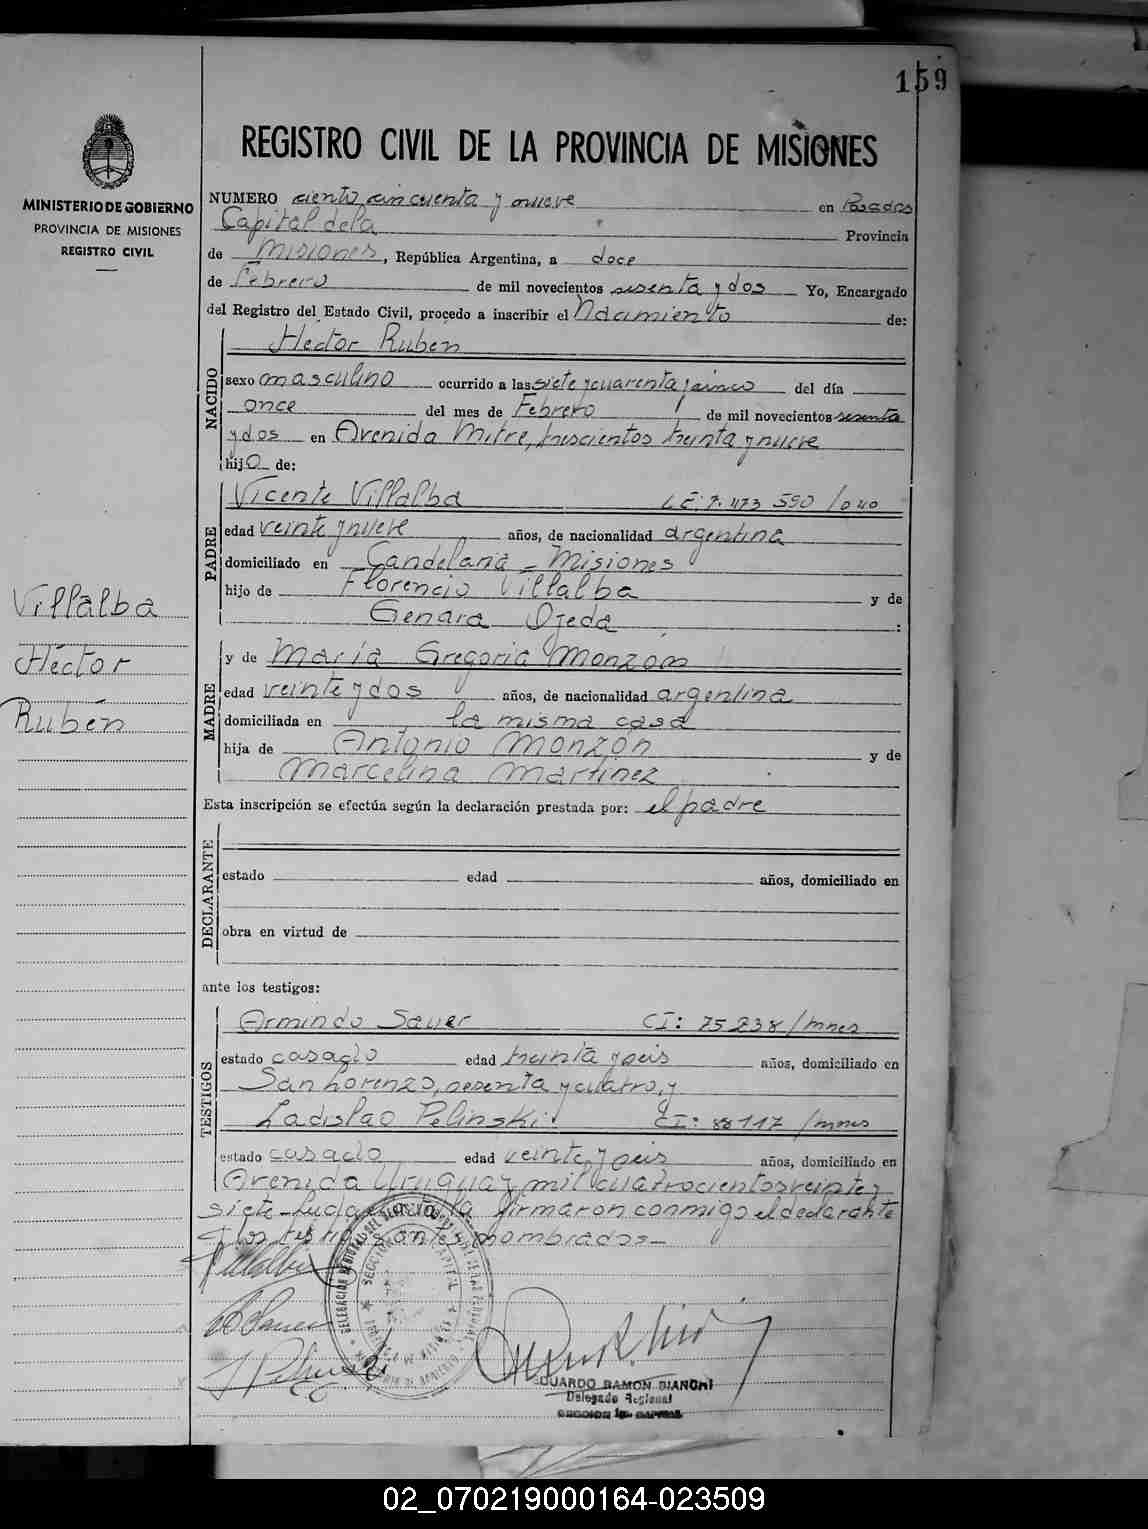 159
REGISTRO CIVIL DE LA PROVINCIA DE MISIONES
MINISTERIO DE GOBIERNO
PROVINCIA DE MISIONES
REGISTRO CIVIL
NUMERO ciento cincuenta y nueve en Posadas
Capital de la Provincia
de Misiones, República Argentina, a doce
de Febrero de mil novecientos sesenta y dos Yo, Encargado
del Registro del Estado Civil, procedo a inscribir el Nacimiento de:
NACIDO
Hector Ruben
sexo masculino ocurrido a las siete y cuarenta y cinco del día
once del mes de Febrero de mil novecientos sesenta
y dos en Avenida Mitre, trescientos treinta y nueve
hijo de:
PADRE
Vicente Villalba LE 7.473.590/040
edad veinte y nueve años, de nacionalidad argentina
domiciliado en Candelaria - Misiones
hijo de Florencio Villalba y de
Genara Ojeda :
MADRE
y de María Gregoria Monzon
edad veinte y dos años, de nacionalidad argentina
domiciliada en la misma casa
hija de Antonio Monzón y de
Marcelina Martinez
Villalba
Héctor
Rubén
Esta inscripción se efectúa según la declaración prestada por: el padre
DECLARANTE
estado edad años, domiciliado en
obra en virtud de
ante los testigos:
TESTIGOS
Armindo Sauer CI: 75238/mnes
estado casado edad treinta y seis años, domiciliado en
San Lorenzo, sesenta y cuatro, y
Ladislao Pelinski CI: 88117/mnes
estado casado edad veinte y seis años, domiciliado en
Avenida Uruguay mil cuatrocientos veinte y
siete - Leída el acta la firmaron conmigo el declarante
y los testigos antes nombrados -
EDUARDO RAMON BIANCHI
Delegado Regional
SECCION 1a CAPITAL
02_070219000164-023509